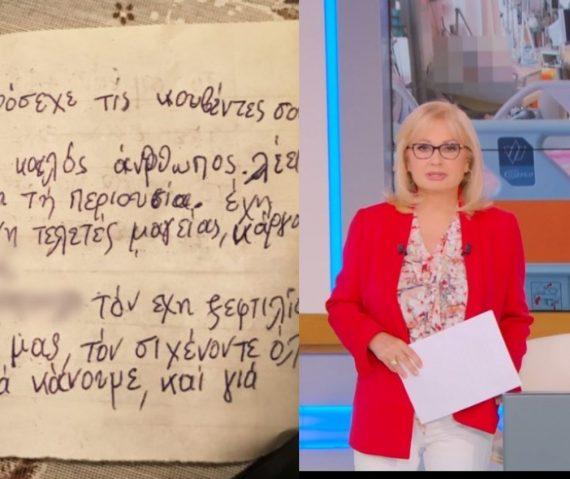 όσεχε τίς κουβέντες σο
καλός άνθρωπος. λέει
τή περιουσία. έχη
η τελετές μαγείας, κάργα
τόν έχη ξεφτιλί
μας, τόν σιχένοντε όλ
ά κάνουμε, καί γιά